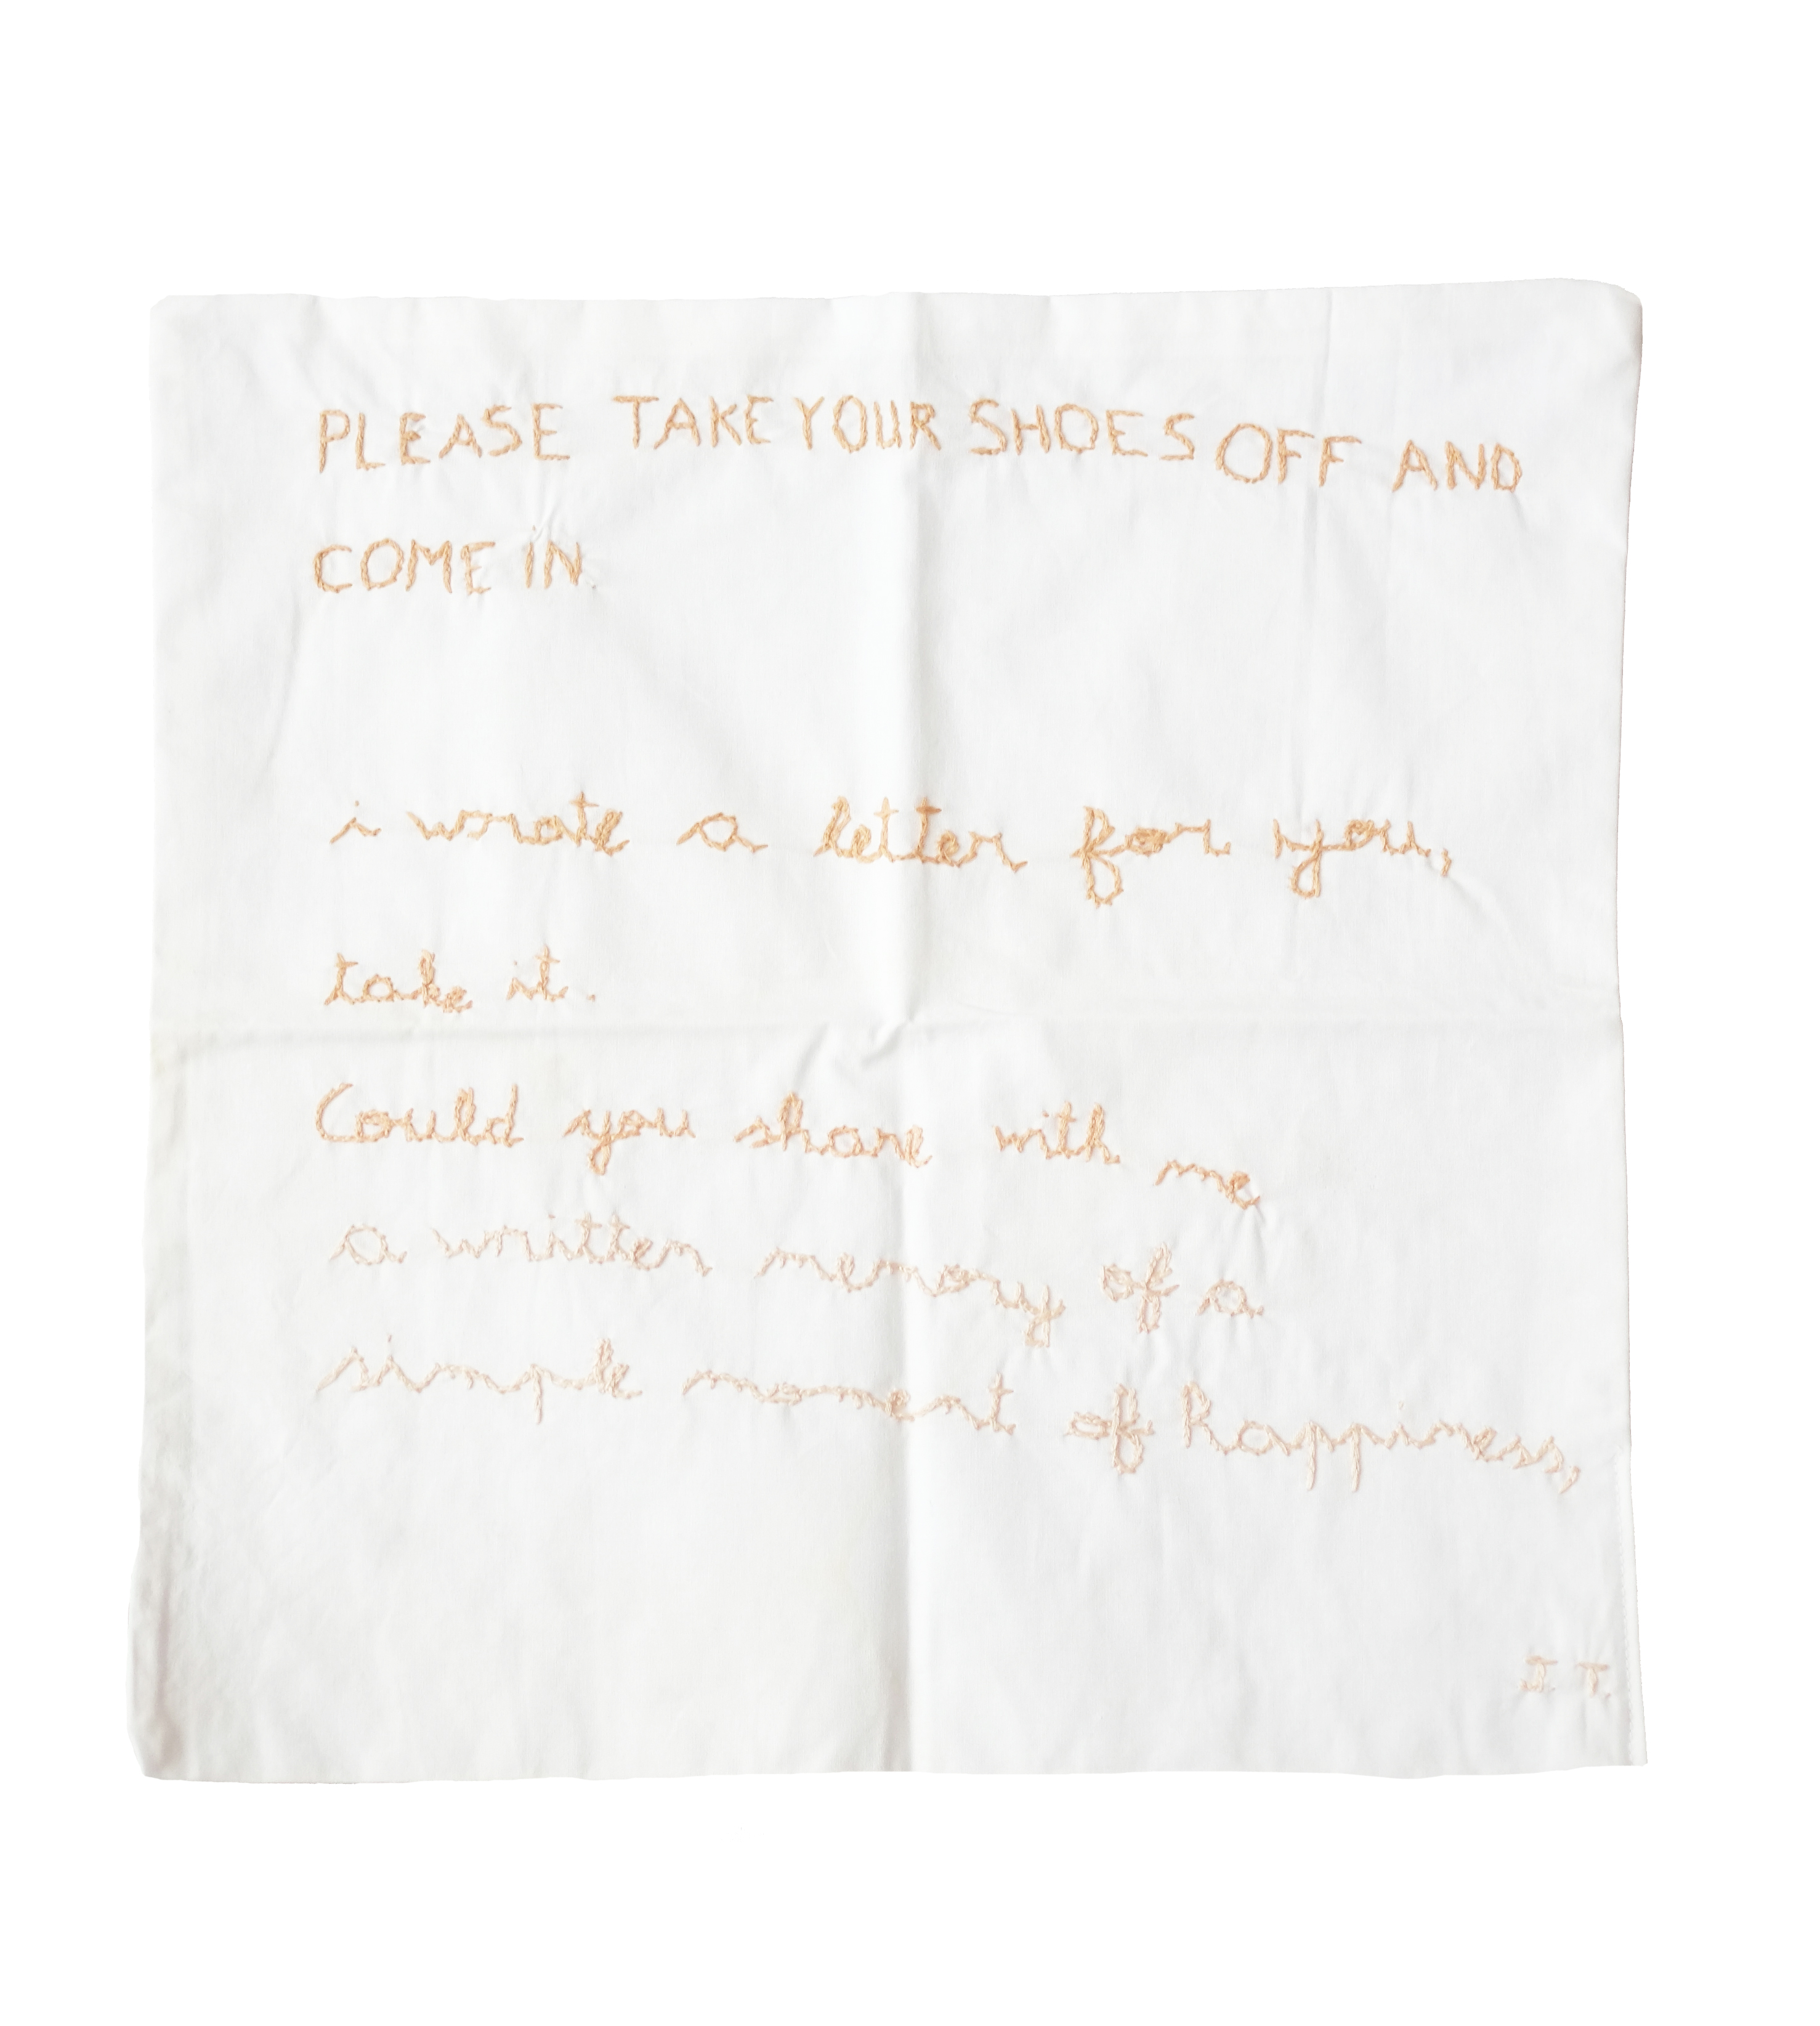 PLEASE TAKE YOUR SHOES OFF AND
COME IN.
i wrote a letter for you,
take it.
Could you share with me
a written memory of a
simple moment of happiness,
J. T.